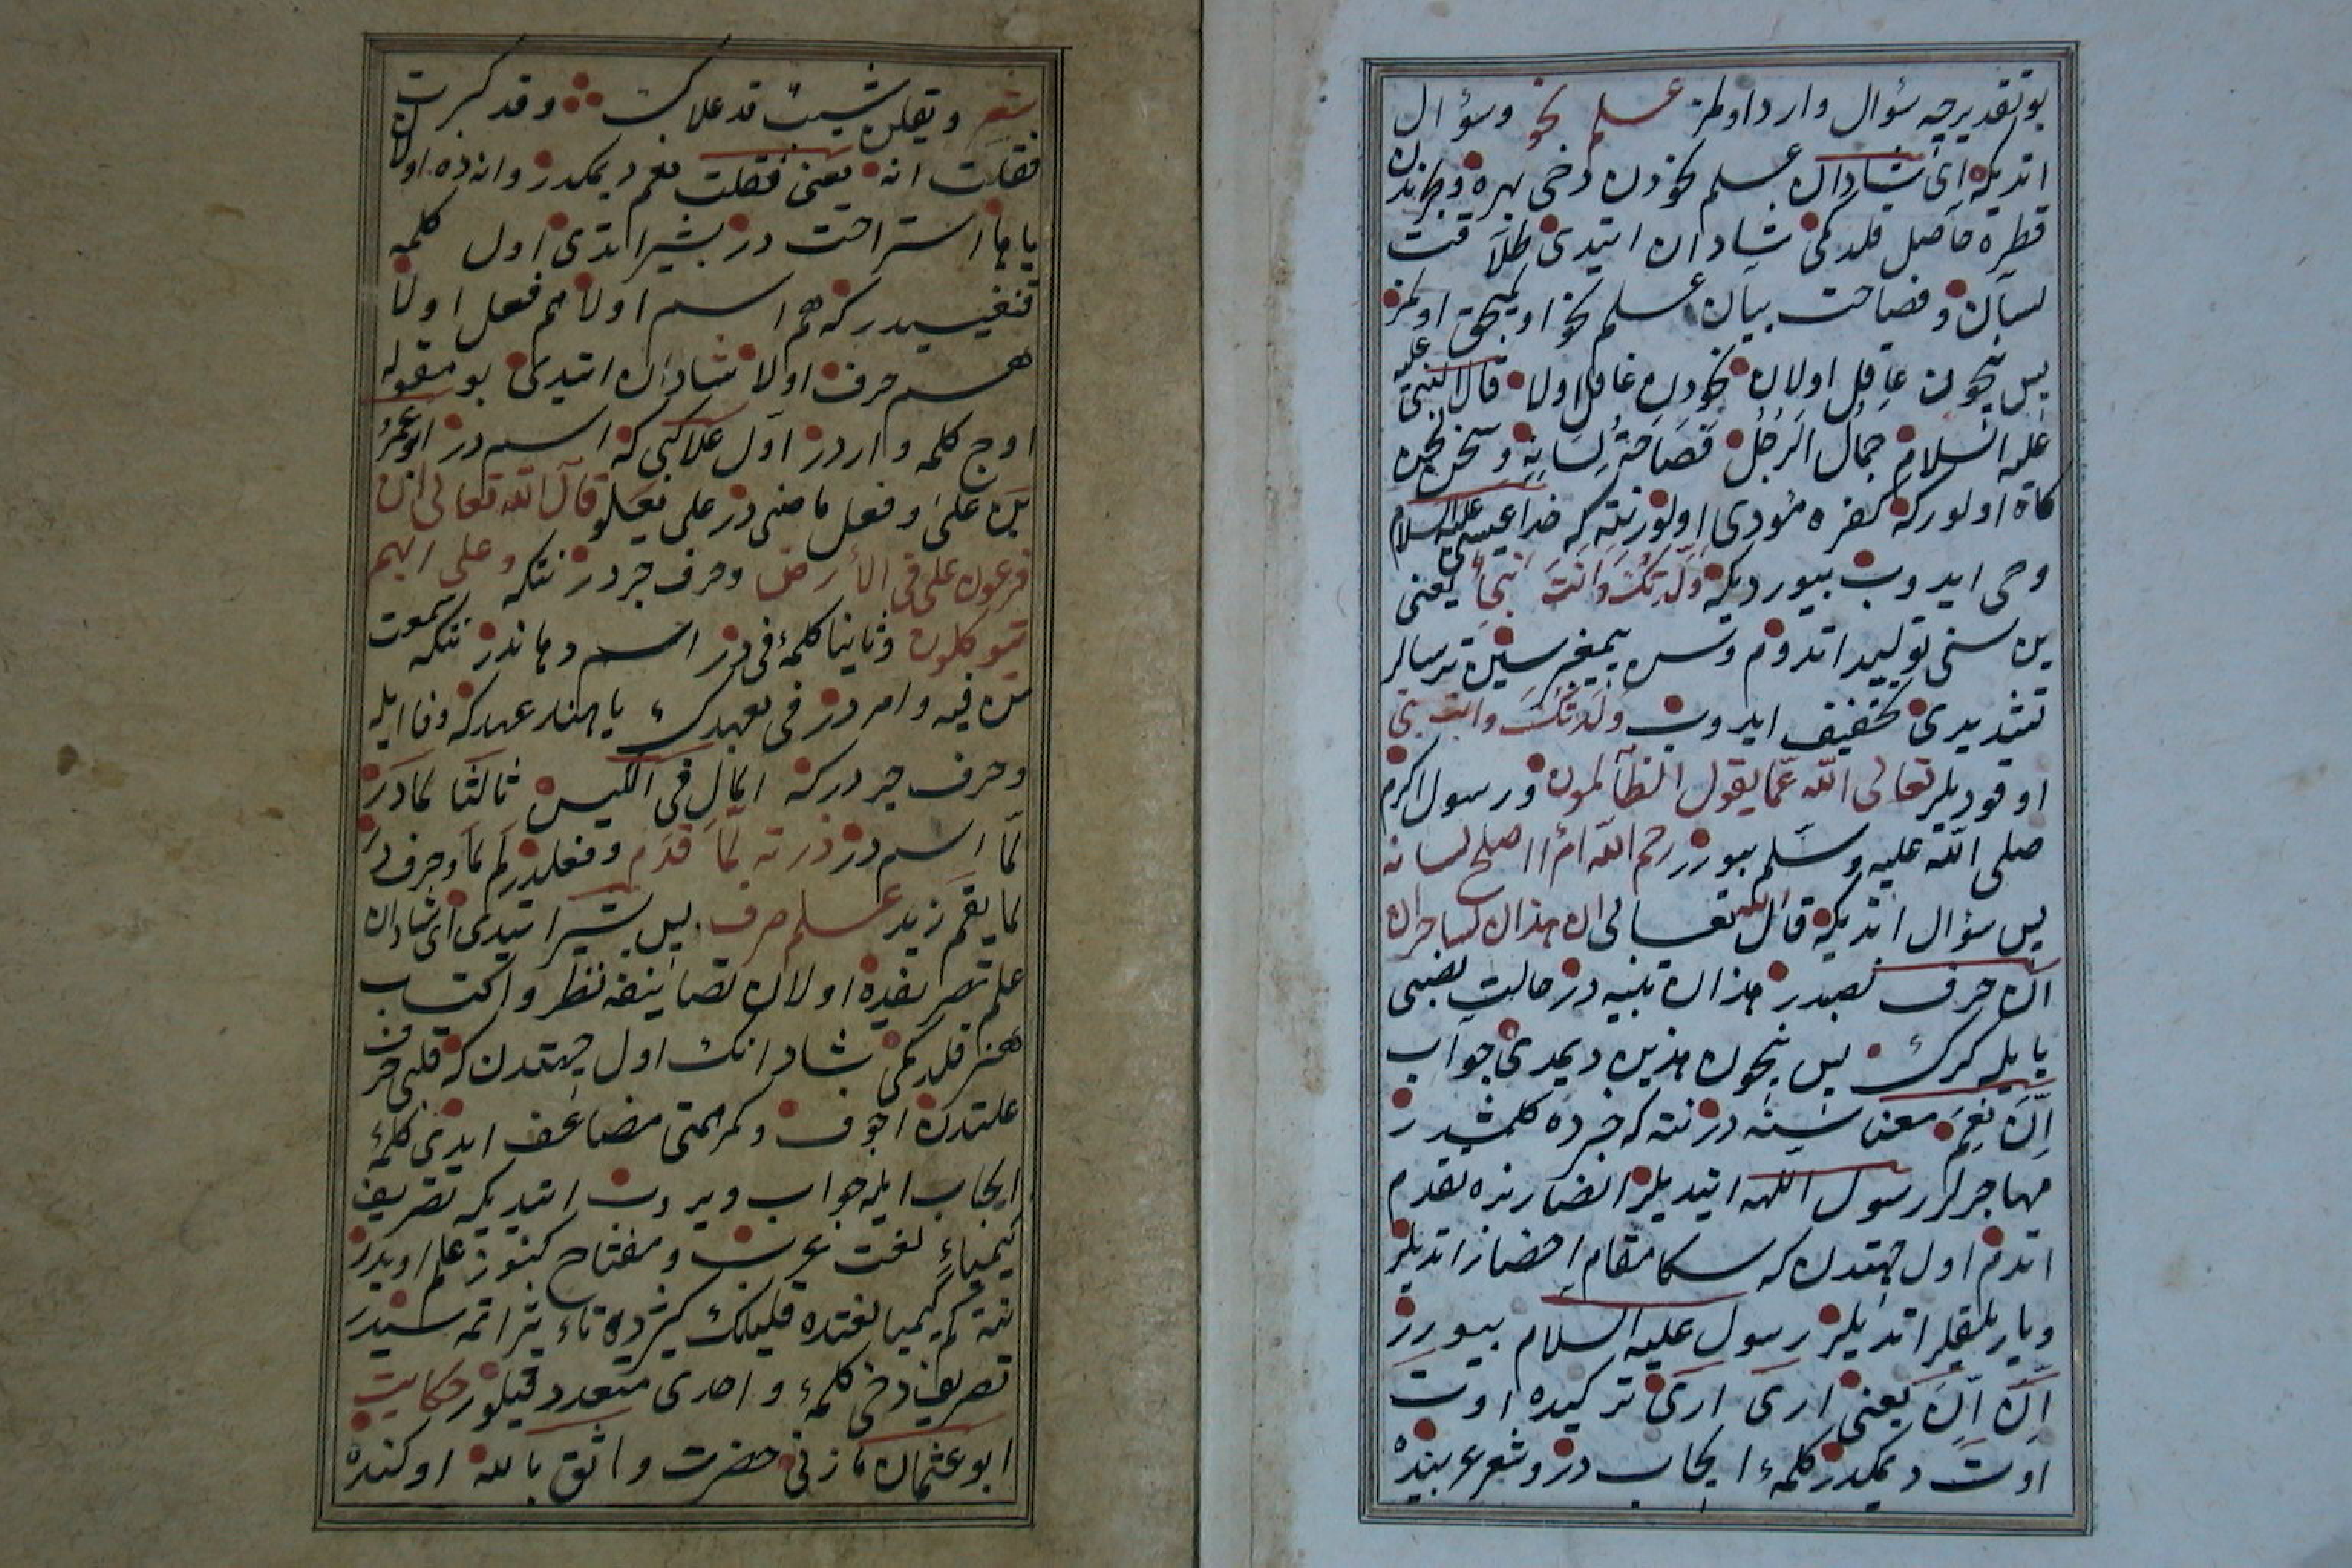 بو تقدیرجه سؤال وارد اولمز علم نحو وسؤال
اتدیکه ای شادان علم نحودن دخی بهره و بحرندن
قطره حاصل قلدکمی شادان ایتدی طلاقت
لسان و فصاحت بیان علم نحو اویمیجق اولمز
پس نیجون عاقل اولان نحودن غافل اولا قال النبی علیه
علیه السلام جمال الرجل فصاحة لسانه و سخن لحن
کاه اولور که کفره مؤدی اولور نته که خدا عیسی علیه السلام
وحی ایدوب بیوردیکه ولدتک وانت نبی یعنی
بن سنی تولید اتدوم وسن پیغمبرسین ترسالر
تشدیدی تخفیف ایدوب ولدتک وانت بنی
اوقودیلر تعالی الله عما یقول الظالمون و رسول اکرم
صلی الله علیه وسلم بیورر رحم الله امرأ اصلح لسانه
پس سؤال اتدیکه قال الله تعالی ان هذان لساحران
ان حرف نصبدر هذان تثنیه در حالت نصبی
یا یله کرک پس نیجون هذین دیمدی جواب
ان نعم معناسینه در نته که خبرده کلمشدر
مهاجرلر رسول اللهه ایتدیلر انصار بزه تقدم
اتدم اول جهتدن که سکا مقام احضار اتدیلر
ویاریلقلر اتدیلر رسول علیه السلام بیورر
ان ان یعنی اری اری ترکیده اوت
اوت دیمکدر کلمهٔ ایجاب در و شعر عربیده
شعر ویقلن شیب قد علاک وقد کبرت
فقلت انه یعنی فقلت نعم دیمکدر وانه ده اولان
یا ها استراحت در بشیر ایتدی اول کلمه
قنغیسیدر که هم اسم اولا هم فعل اولا
هم حرف اولا شادان ایتدی بو مقوله
اوج کلمه واردر اول علا کبی که اسم در ابو عمرو
بن علی و فعل ماضی در علی یعلو قال الله تعالی ان
فرعون علی فی الأرض وحرف جر در نتکه وعلی الهم
یتوکلون وثانیا کلمهٔ فی در اسم دهاندر نتکه سمعت
من فیه وامر در فی بعهدک یا هند عهدکه وفا ایله
وحرف جر درکه المال فی الکیس ثالثا لما در
لما اسم در ذرته لما قدم و فعلدر لم لما وحرف در
لما یقم زید علم صرف پس بشیر ایتدی ای شادان
علم تصریفده اولان تصانیفه نظر واکتساب
هنر قلدکمی شادانک اول جهتدن که قلبی حرف
علتدن اجوف و کمر همتی مضاعف ایدی کلمهٔ
ایجاب ایله جواب ویروب ایتدیکه تصریف
کیمیاء لغت عرب و مفتاح کنوز علم اوبدر
نته کم کیمیا لغتده قلیلک کثیرده تاءثیر اتمه سیدر
تصریف دخی کلمهٔ واحدی متعدد قیلور حکایت
ابو عثمان مازنی حضرت واثق بالله اوکنده